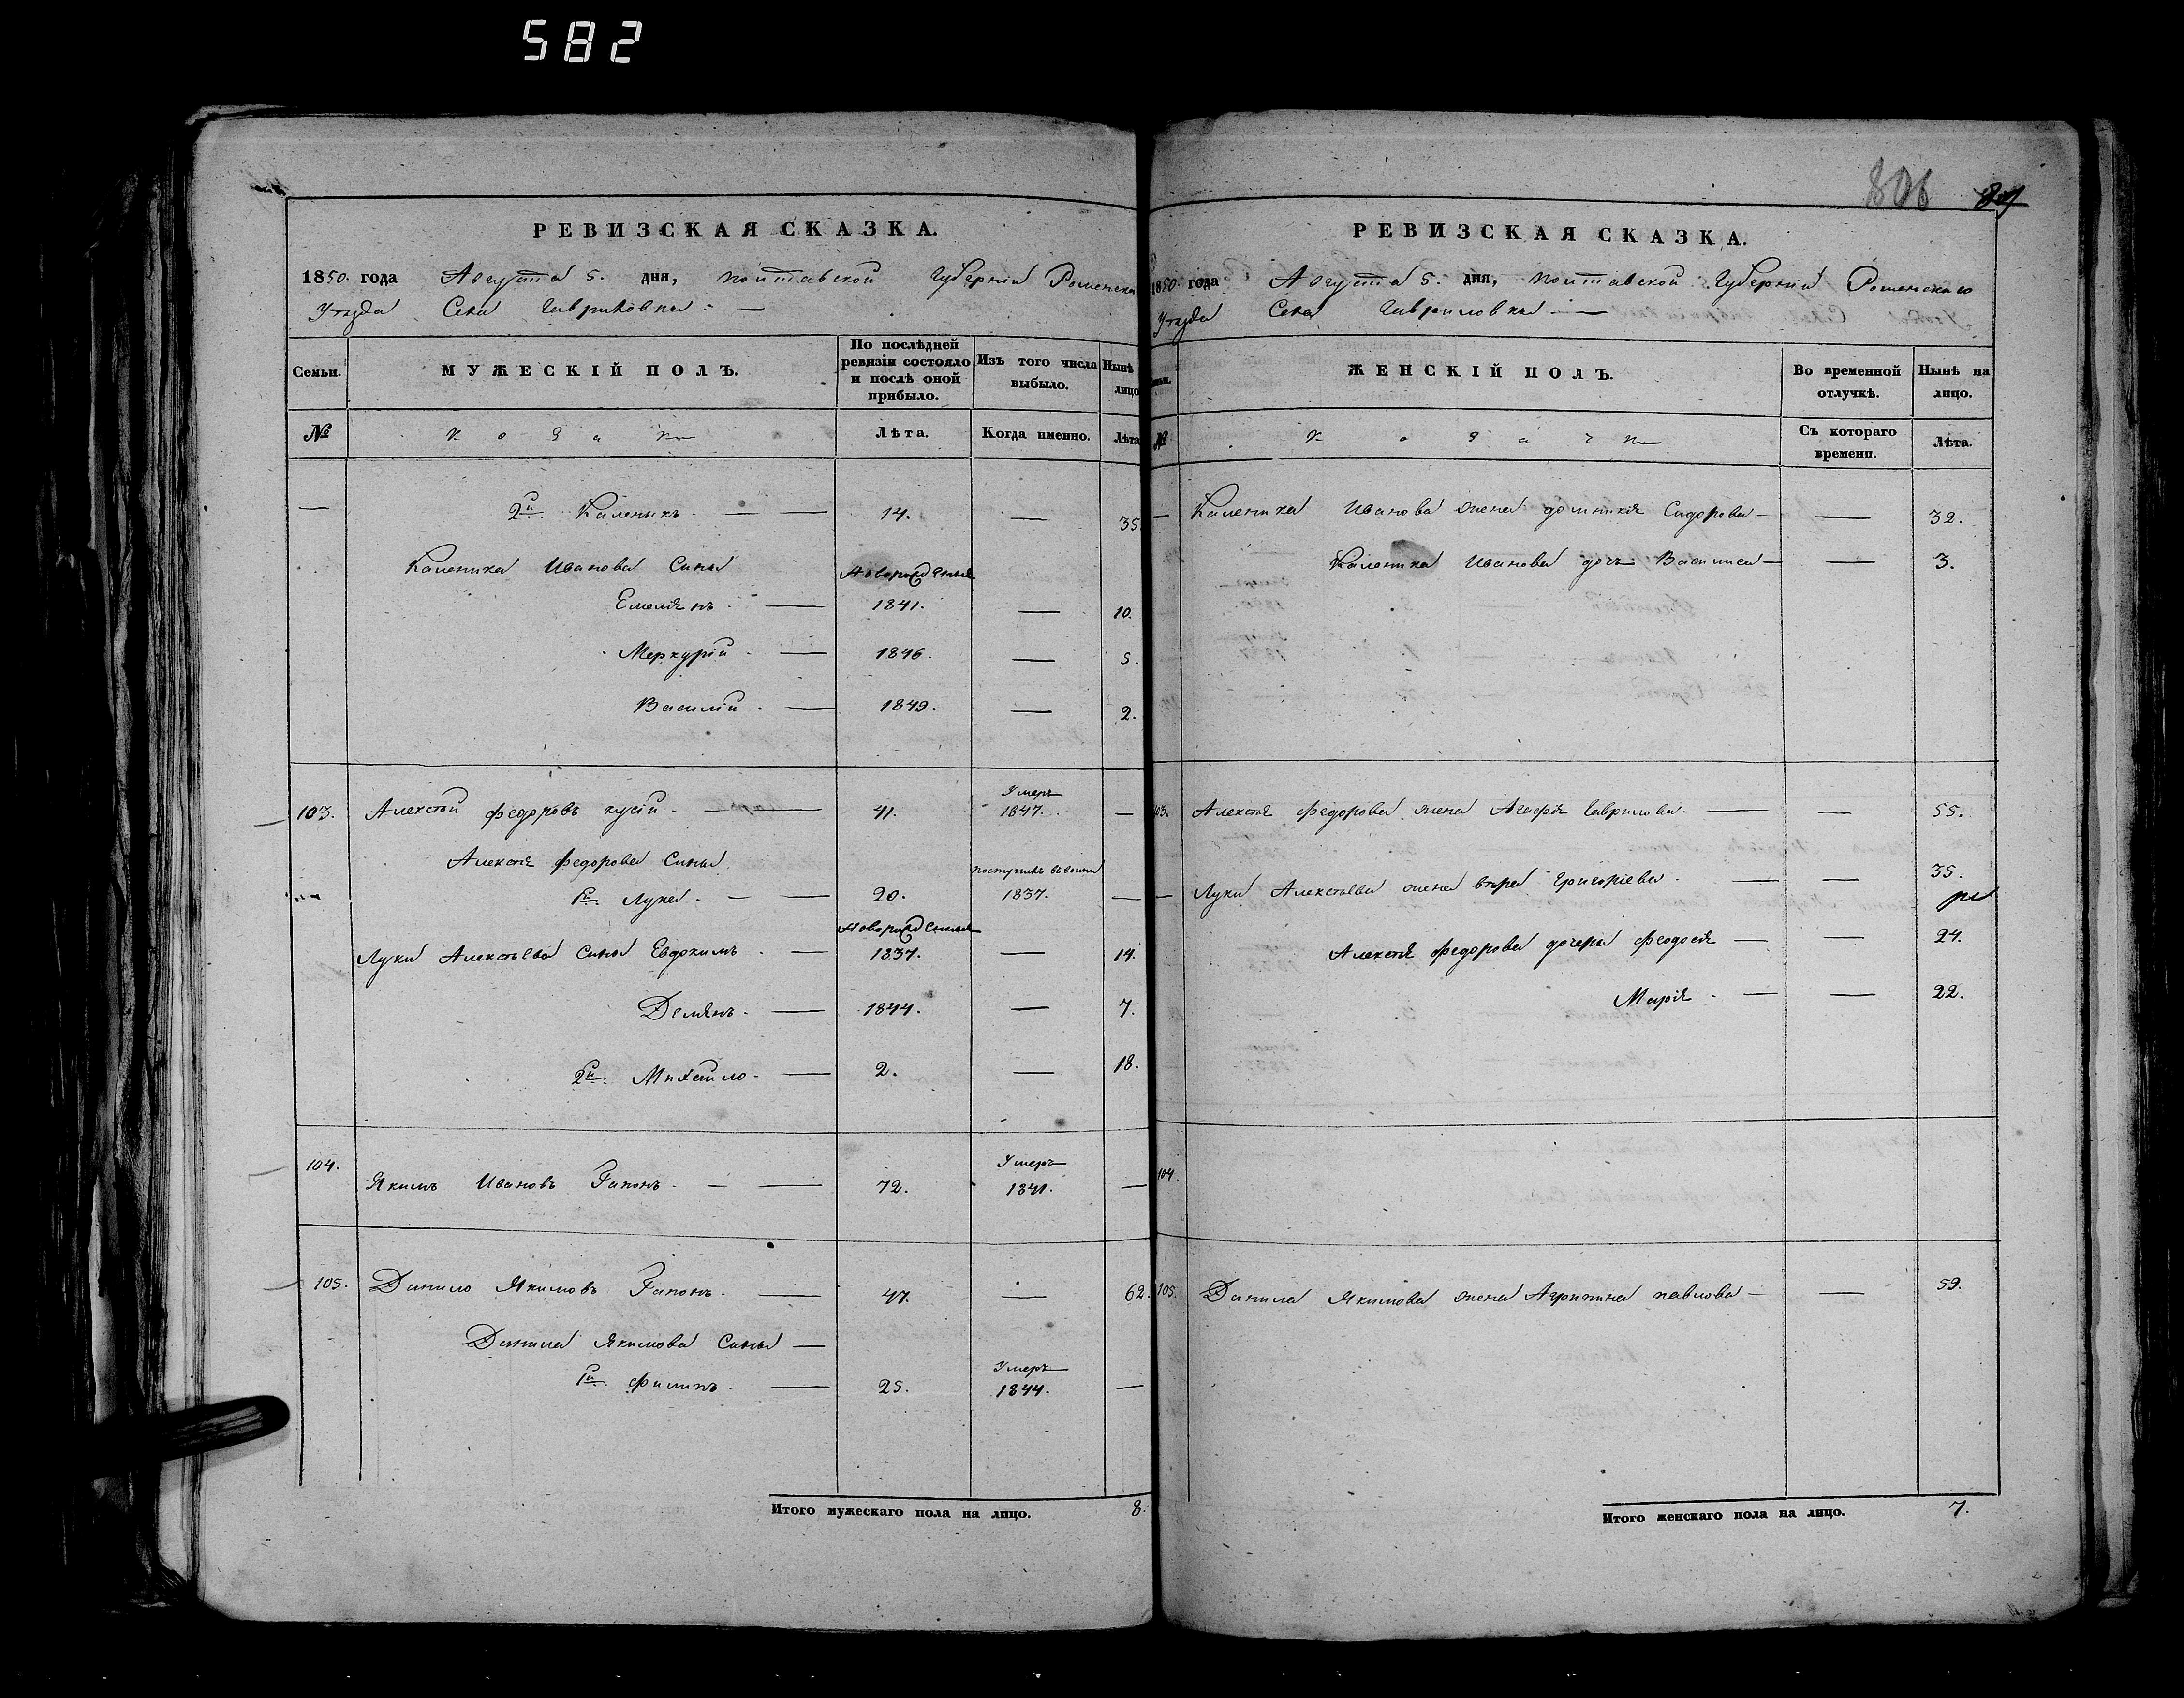 582
РЕВИЗСКАЯ СКАЗКА.
1850. года Августа 5. дня, Полтавской Губерніи Роменска
Уѣзда Села Гавриловки. —
Семьи. МУЖЕСКІЙ ПОЛЪ. По послѣдней ревизіи состояло и послѣ оной прибыло. Изъ того числа выбыло. Нынѣ лицо
№ Козаки Лѣта. Когда именно. Лѣта
— 2й Каленыкъ. — — 14. — 35
Каленика Иванова Сины Новорожденыя
Емелянъ. — 1841. — 10.
Меркурій. — 1846. — 5.
Василій. — 1849. — 2.
103. Алексѣй Федоровъ — 41. Умеръ 1847. —
Алексѣя Федорова Сины
1й Лука. — — 20. поступилъ 1837. —
Новорожденыя
Луки Алексѣева Сины Евдокимъ. — 1837. — 14.
Демянъ. — 1844. — 7.
2й Михайло. — 2. — 18.
104. Якимъ Ивановъ Гапонъ. — — 72. Умеръ 1841. —
105. Данило Якимовъ Гапонъ. — 47. — 62.
Данила Якимова Сины —
1й Филипъ. — 25. Умеръ 1844. —
Итого мужескаго пола на лицо. 8.
806
РЕВИЗСКАЯ СКАЗКА.
1850. года Августа 5. дня, Полтавской Губерніи Роменскаго
Уѣзда Села Гавриловки. —
ЖЕНСКІЙ ПОЛЪ. Во временной отлучкѣ. Нынѣ на лицо.
№ Козачки Съ котораго времени. Лѣта.
— Каленика Иванова жена Домникія Сидорова — — 32.
Каленика Иванова дочь Василиса — — 3.
103. Алексѣя Федорова жена Агафія Гаврилова. — — 55.
— Луки Алексѣева жена Григоріева. — — 35.
Алексѣя Федорова дочеры Феодосія — — 24.
Марія. — — 22.
104.
105. Данила Якимова жена Агрипина Павлова — — 59.
Итого женскаго пола на лицо. 7.